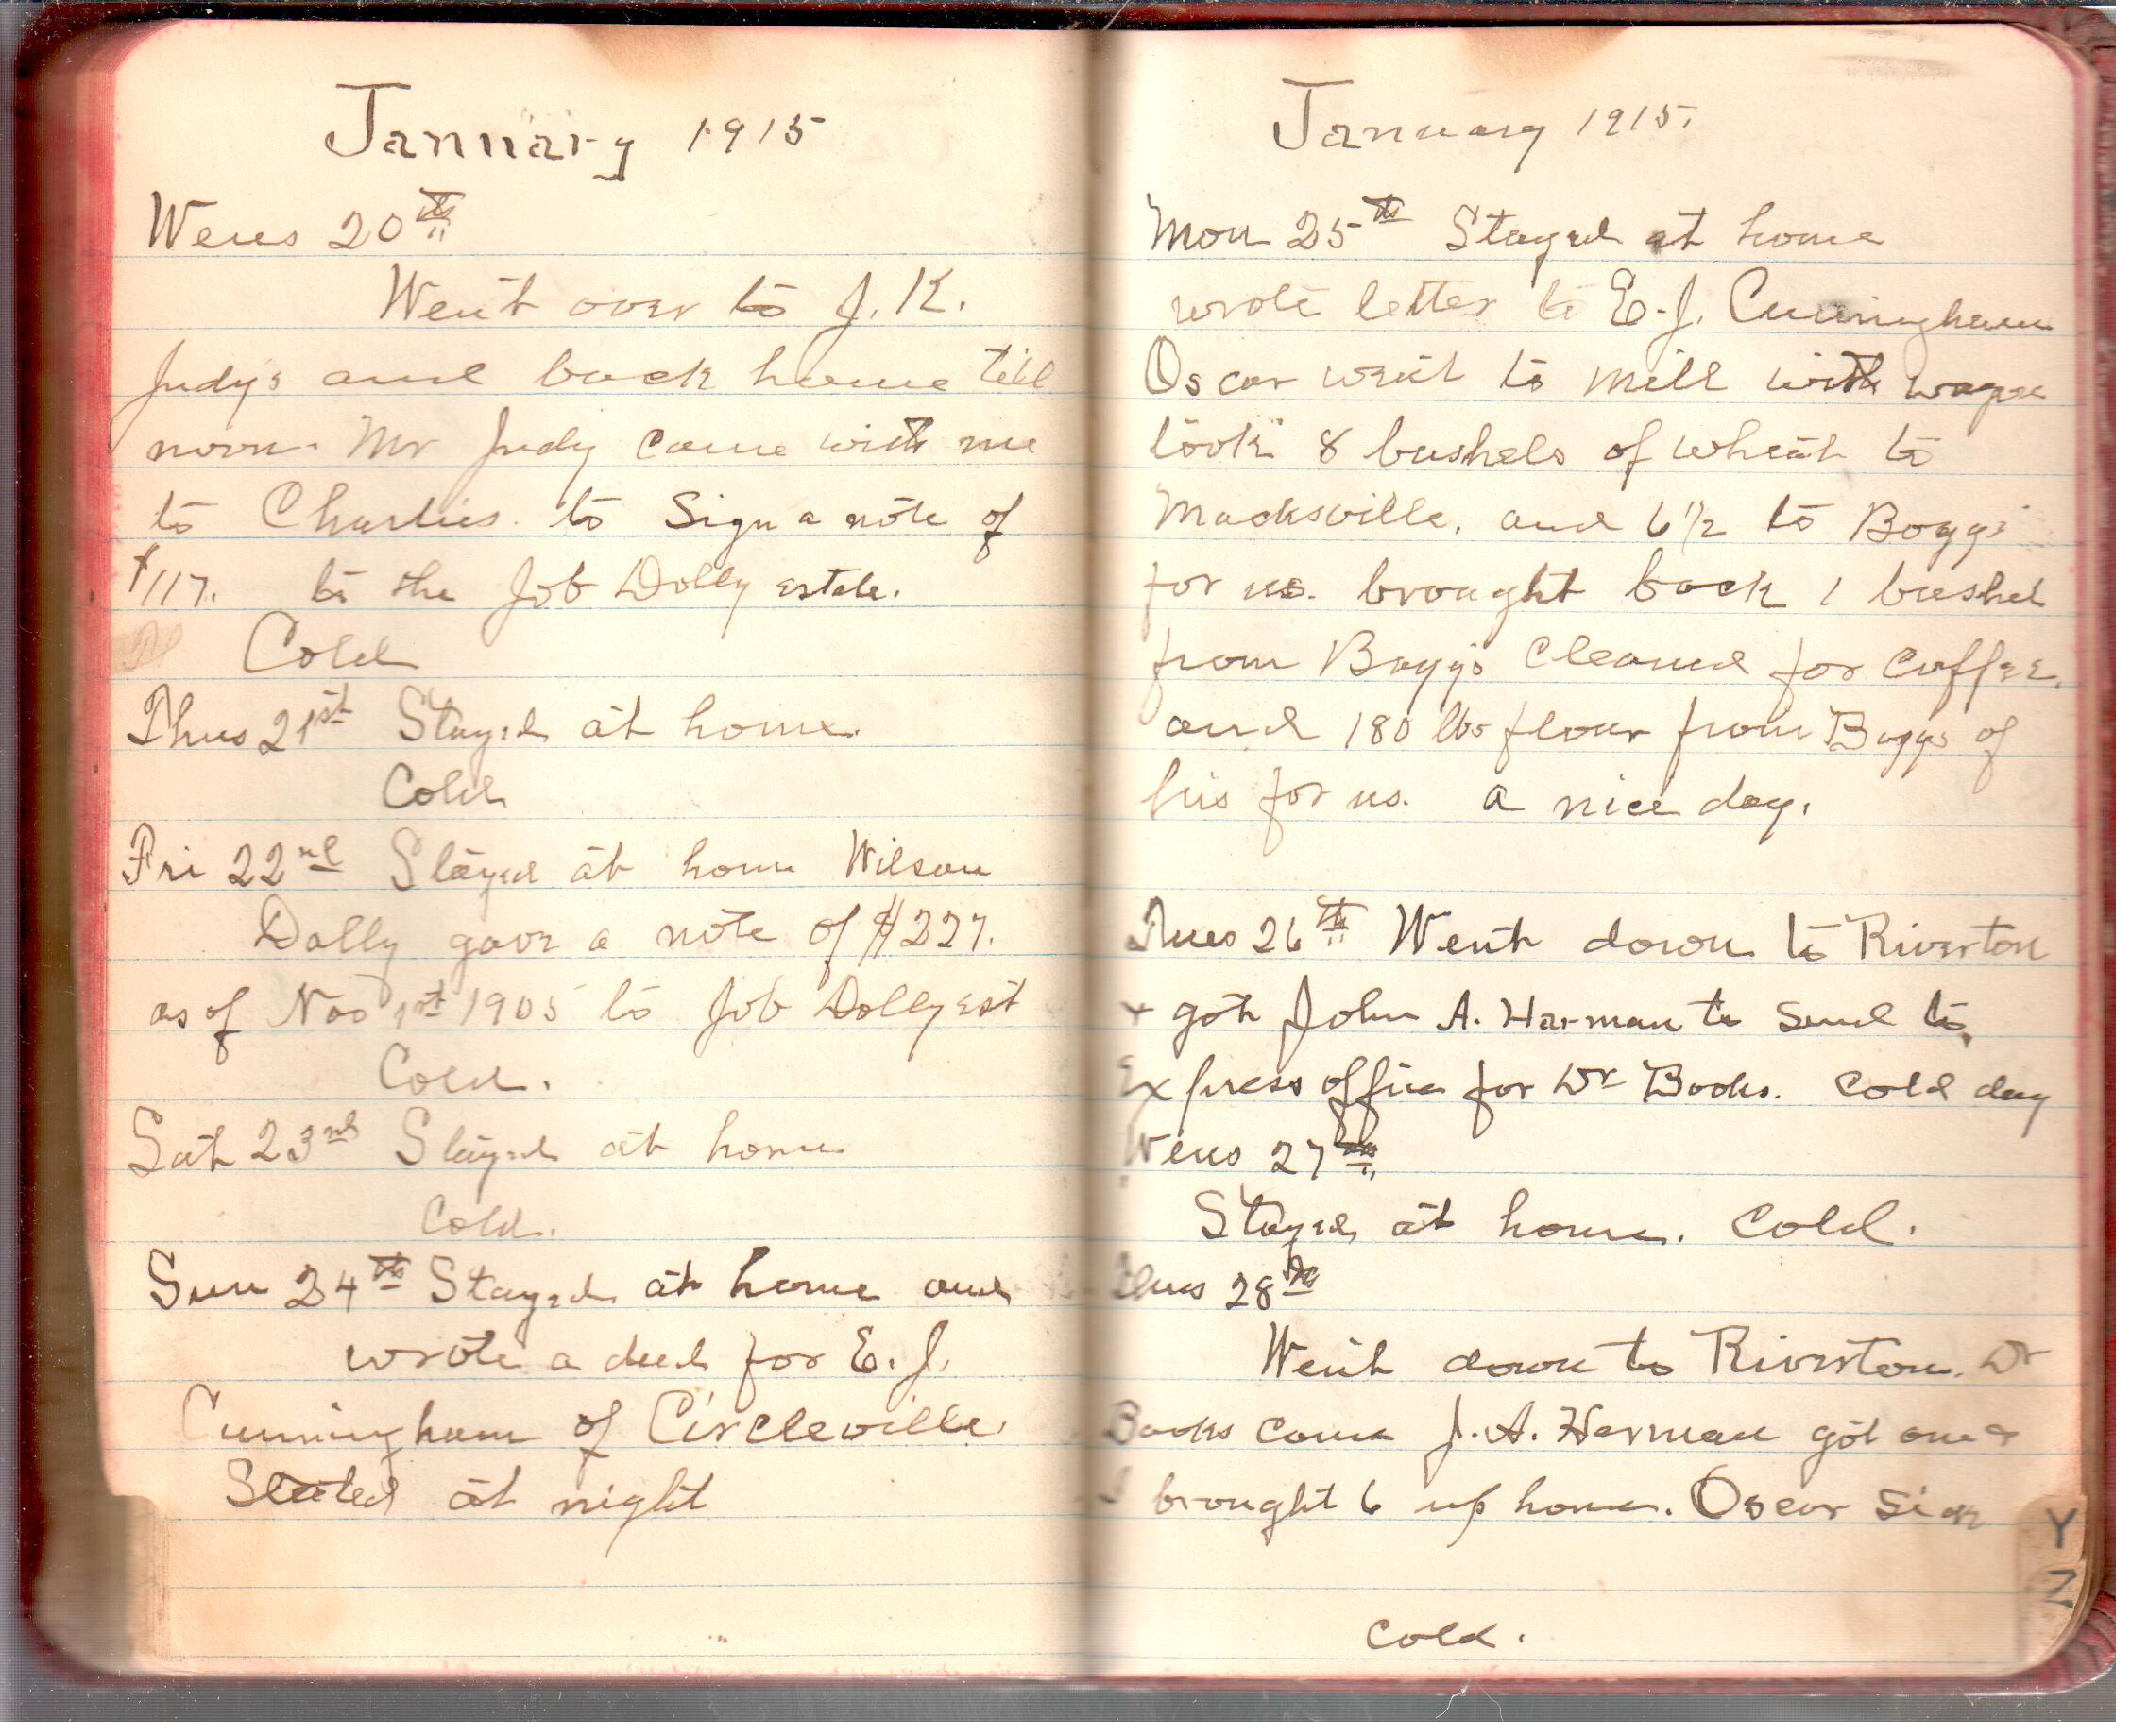 January 1915
Wens 20th
Went over to J. K.
Judys and back home till
noon. Mr Judy came with me
to Charlies. to Sign a note of
$117. to the Job Dolly estate.
Cold
Thus 21st Stayed at home.
Cold
Fri 22nd Stayed at home Wilson
Dolly gave a note of $227.
as of Nov 1st 1905 to Job Dolly est
Cold.
Sat 23rd Stayed at home
Cold.
Sun 24th Stayed at home and
wrote a deed for E. J.
Cunningham of Circleville.
Sleeted at night
January 1915.
Mon 25th Stayed at home
wrote letter to E. J. Cunningham
Oscar went to mill with wagon
took 8 bushels of wheat to
Macksville, and 6 1/2 to Boggs
for us. brought back 1 bushel
from Boggs Cleaned for Coffee.
and 180 lbs flour from Boggs of
his for us. a nice day.
Tues 26th Went down to Riverton
+ got John A. Harman to send to
Express office for Dr Books. Cold day
Wens 27th
Stayed at home. Cold.
Thus 28th
Went down to Riverton. Dr
Books come J. A. Harman got one &
I brought 6 up home. Oscar Sick
Cold.
Y
Z